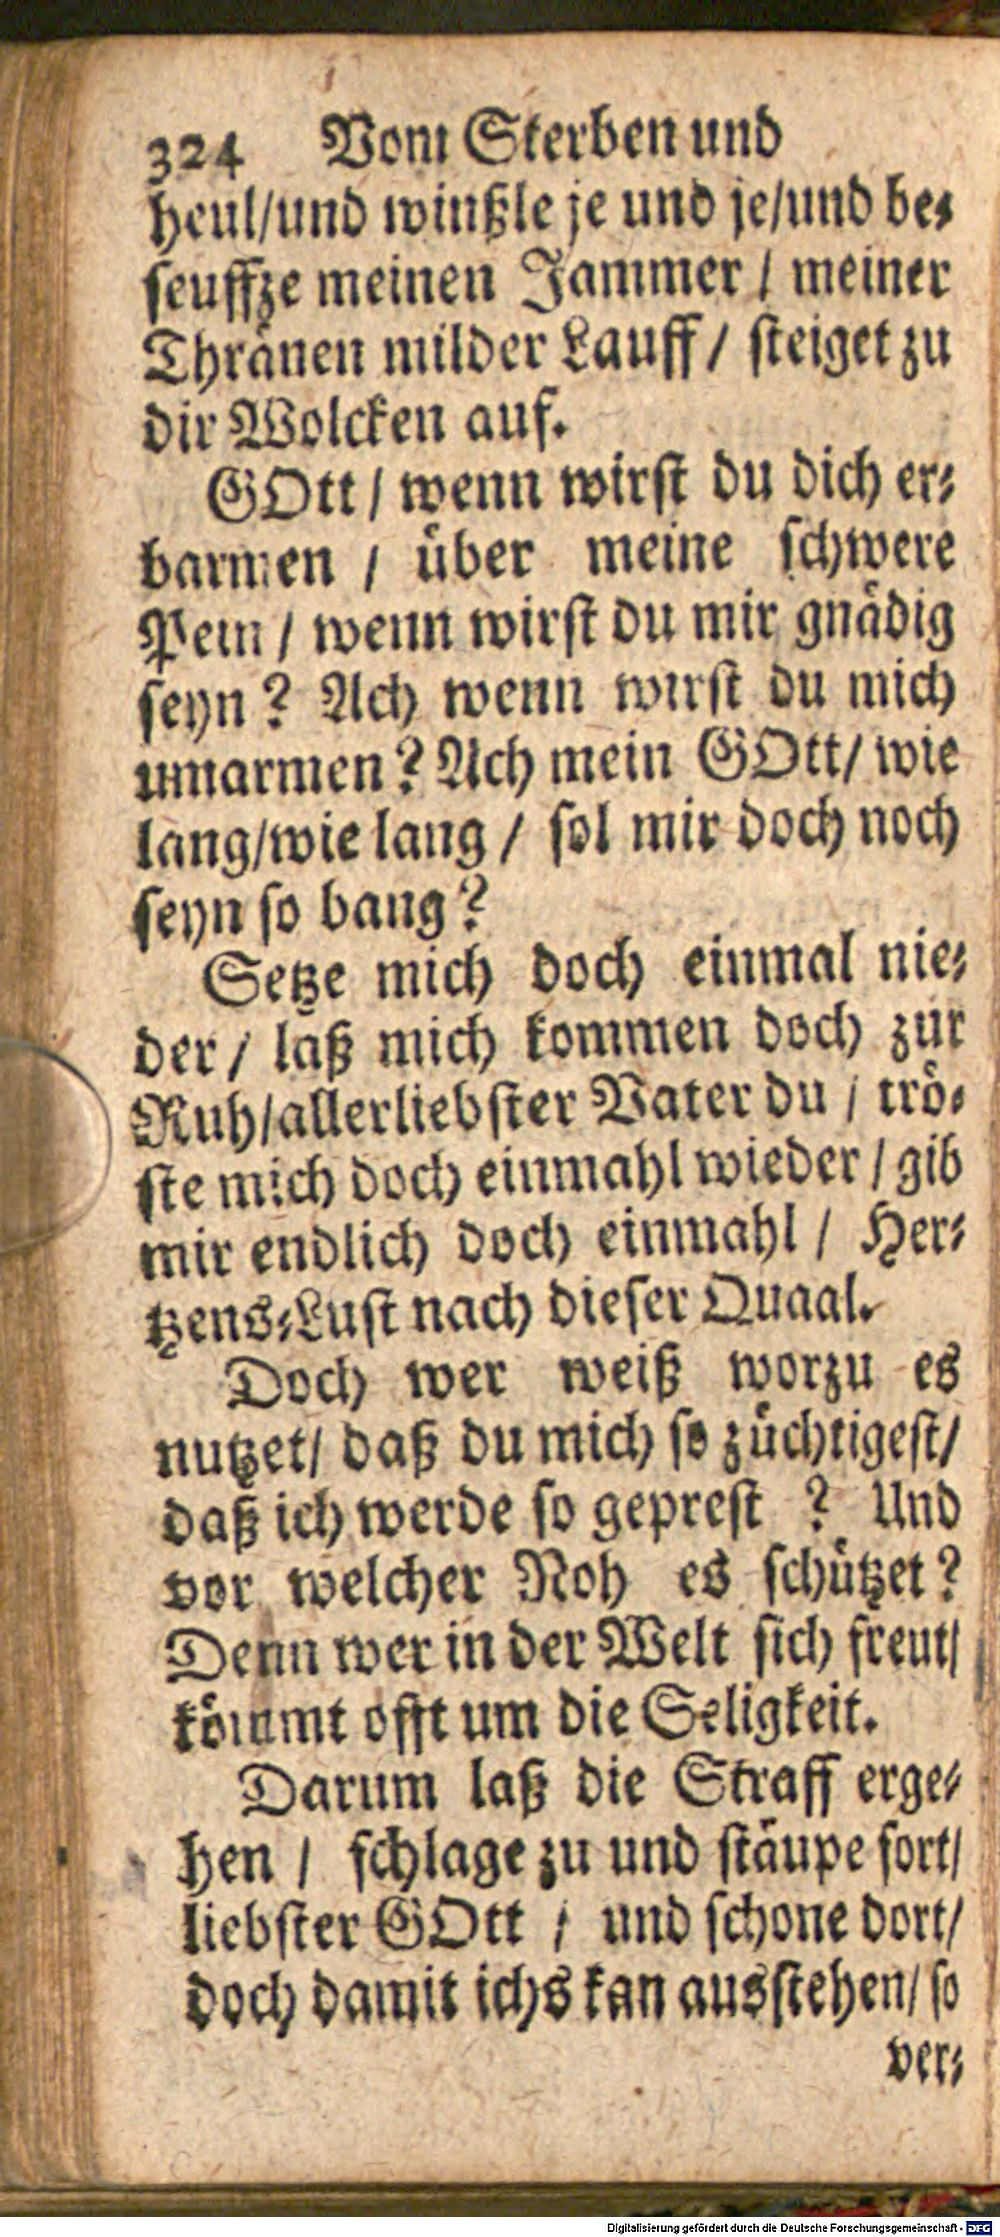 324 Vom Sterben und
heul/und winßle je und je/und be-
seuffze meinen Jammer / meiner
Thränen milder Lauff / steiget zu
dir Wolcken auf.
GOtt / wenn wirst du dich er-
barmen / über meine schwere
Pein / wenn wirst du mir gnädig
seyn? Ach wenn wirst du mich
umarmen? Ach mein GOtt/ wie
lang/wie lang / sol mir doch noch
seyn so bang?
Setze mich doch einmal nie-
der / laß mich kommen doch zur
Ruh/allerliebster Vater du / trö-
ste mich doch einmahl wieder / gib
mir endlich doch einmahl / Her-
tzens-Lust nach dieser Quaal.
Doch wer weiß worzu es
nutzet/ daß du mich so züchtigest/
daß ich werde so geprest ? Und
vor welcher Noh es schützet?
Denn wer in der Welt sich freut/
kömmt offt um die Seligkeit.
Darum laß die Straff erge-
hen / schlage zu und stäupe fort/
liebster GOtt / und schone dort/
doch damit ichs kan ausstehen/ so
ver-
Digitalisierung gefördert durch die Deutsche Forschungsgemeinschaft - DFG